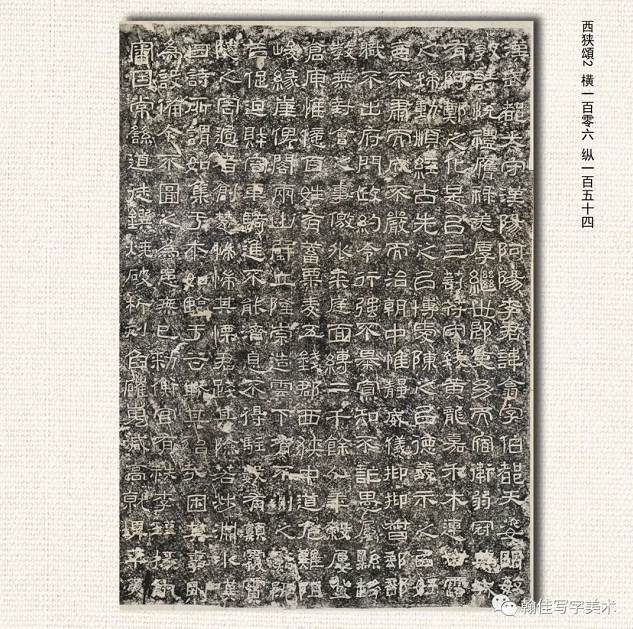 西狭頌2 橫一百零六 纵一百五十四
漢武都太守漢陽阿陽李君諱翕字伯都天姿明敏
敦詩悅禮膺祿美厚繼世郎吏幼而宿衛弱冠典城
有阿鄭之化是以三剖苻守致黃龍嘉禾木連甘露
之瑞動順經古先之以博愛陳之以德義示之以好
惡不肅而成不嚴而治朝中惟靜威儀抑抑督郵部
職不出府門政約令行強不暴寡知不詐愚屬縣趨
教無對會之事徼外來庭面縛二千餘人年穀屢登
倉庾惟億百姓有蓄粟麥五錢郡西狹中道危難阻
峻緣崖俾閣兩山壁立隆崇造雲下有不測之谿阨
芒促迫財容車騎進不能濟息不得駐數有顛覆霣
隧之害過者創楚惴惴其慄君踐其險若涉淵冰歎
曰詩所謂如集于木如臨于谷斯其殆哉困其事則
為設備今不圖之為患無已敕衡官有秩李瑾掾仇
審因常繇道徒鐉燒破析刻臽確嵬減高就埤平夷
翰佳写字美术